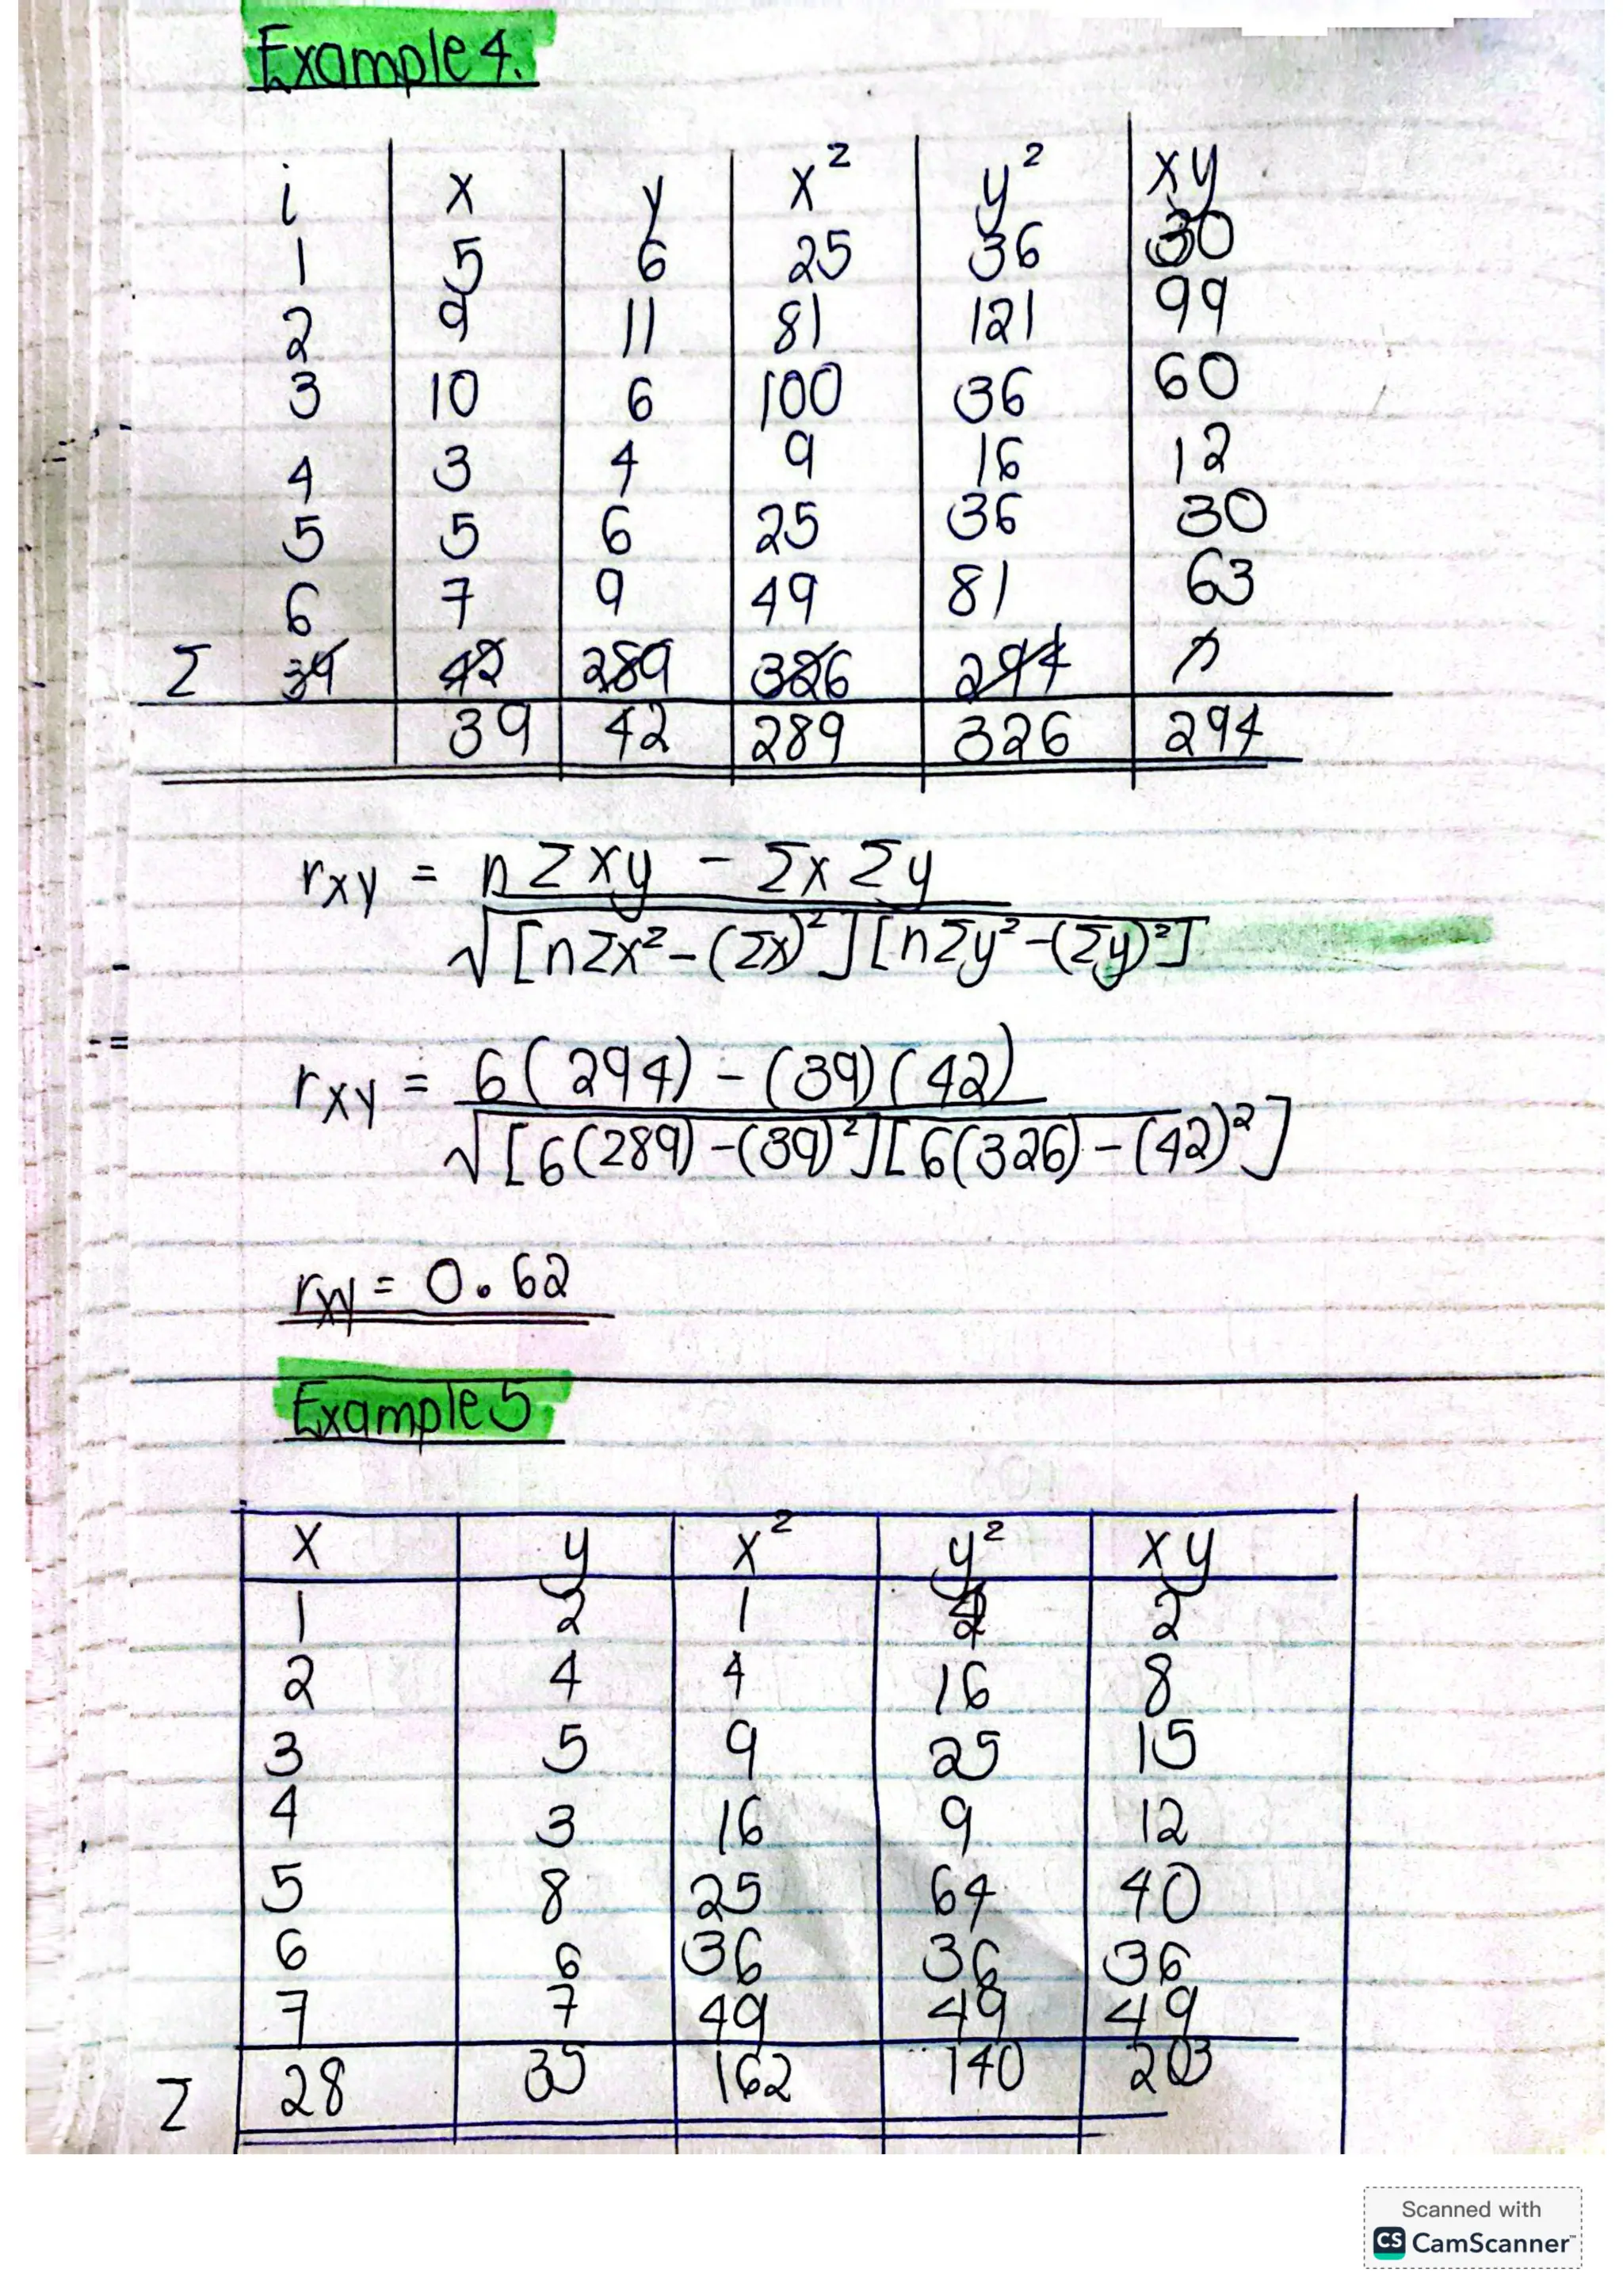 Example 4.
i x y x² y² xy
1 5 6 25 36 30
2 9 11 81 121 99
3 10 6 100 36 60
4 3 4 9 16 12
5 5 6 25 36 30
6 7 9 49 81 63
Σ 39 42 289 326 294
39 42 289 326 294
rxy = nΣxy - ΣxΣy
√[nΣx²-(Σx)²][nΣy²-(Σy)²]
rxy = 6(294) - (39)(42)
√[6(289)-(39)²][6(326)-(42)²]
rxy = 0.62
Example 5
x y x² y² xy
1 2 1 4 2
2 4 4 16 8
3 5 9 25 15
4 3 16 9 12
5 8 25 64 40
6 6 36 36 36
7 7 49 49 49
Σ 28 35 162 140 203
Scanned with
CS CamScanner™